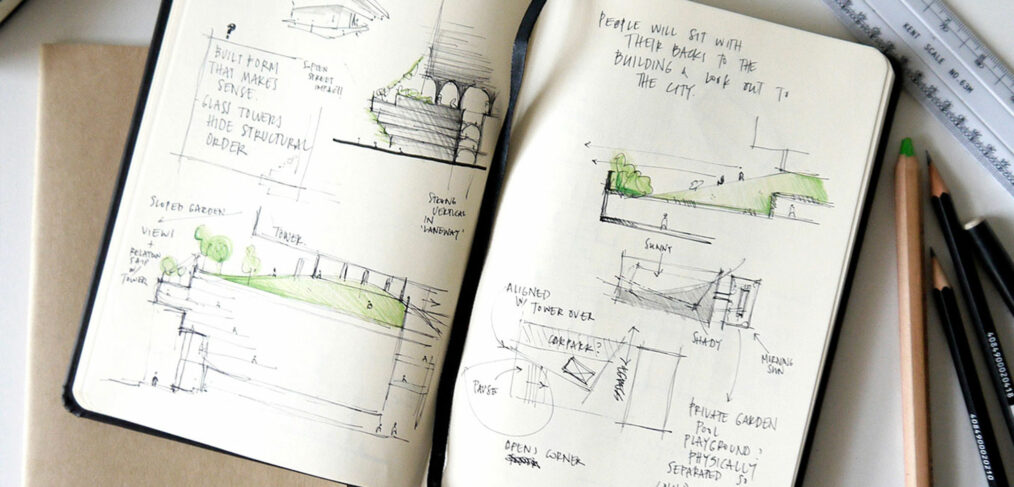 ?
BUILT FORM
THAT MAKES
SENSE.
GLASS TOWERS
HIDE STRUCTURAL
ORDER
SOFTEN
STREET
STRONG
VERTICAL
IN
'LANEWAY'
SLOPED GARDEN
VIEWS
+
RELATION
SHIP
W/
TOWER
TOWER
PEOPLE WILL SIT WITH
THEIR BACKS TO THE
BUILDING & LOOK OUT TO
THE CITY.
SUNNY
ALIGNED
W/ TOWER OVER
CARPARK?
SHADY
MORNING
SUN
PAUSE
OPENS CORNER
PRIVATE GARDEN
POOL
PLAYGROUND?
PHYSICALLY
SEPARATED SO
KENT SCALE NO.63M
4084900020418
4084900020210